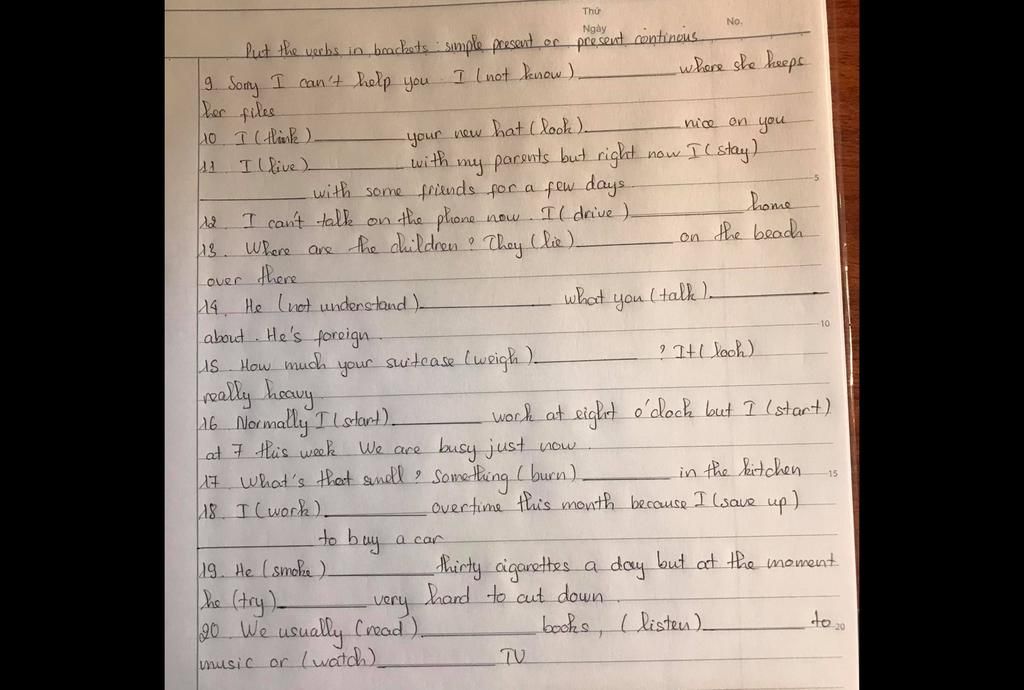 Thứ
Ngày
No.
Put the verbs in brackets: simple present or present continous
9. Sorry I can't help you. I (not know)__________ where she keeps
her files
10. I (think)__________ your new hat (look)__________ nice on you
11. I (live)__________ with my parents but right now I (stay)
__________ with some friends for a few days
5
12. I can't talk on the phone now. I (drive)__________ home
13. Where are the children? They (lie)__________ on the beach
over there
14. He (not understand)__________ what you (talk)__________
10
about. He's foreign.
15. How much your suitcase (weigh)__________? It (look)
really heavy
16. Normally I (start)__________ work at eight o'clock but I (start)
at 7 this week. We are busy just now.
17. What's that smell? Something (burn)__________ in the kitchen
15
18. I (work)__________ overtime this month because I (save up)
__________ to buy a car
19. He (smoke)__________ thirty cigarettes a day but at the moment
he (try)__________ very hard to cut down.
20. We usually (read)__________ books, (listen)__________ to
20
music or (watch)__________ TV